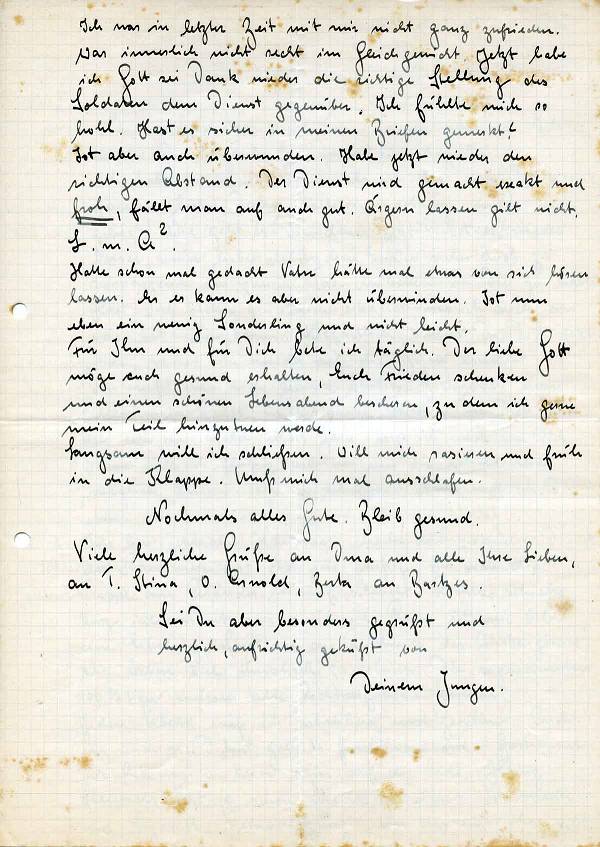 Ich war in letzter Zeit mit mir nicht ganz zufrieden.
War innerlich nicht recht im Gleichgewicht. Jetzt habe
ich Gott sei Dank wieder die richtige Stellung des
Soldaten dem Dienst gegenüber. Ich fühlte mich so
hohl. Hast es sicher in meinen Briefen gemerkt!
Ist aber auch überwunden. Habe jetzt wieder den
richtigen Abstand. Der Dienst wird gemacht exakt und
froh, fällt man auf auch gut. Ärgern lassen gilt nicht.
L. m. A².
Hatte schon mal gedacht Vater hätte mal etwas von sich hören
lassen. Er es kann es aber nicht überwinden. Ist nun
eben ein wenig Sonderling und nicht leicht.
Für Ihn und für Dich bete ich täglich. Der liebe Gott
möge euch gesund erhalten, Euch Frieden schenken
und einen schönen Lebensabend bescheren, zu dem ich gerne
mein Teil hinzutuen werde.
Langsam will ich schließen. Will mich rasieren und früh
in die Klappe. Muß mich mal ausschlafen.
Nochmals alles Gute. Bleib gesund.
Viele herzliche Grüße an Oma und alle Ihre Lieben,
an T. Stina, O. Arnold, Berta an Bartzes.
Sei Du aber besonders gegrüßt und
herzlich, aufrichtig geküßt von
Deinem Jungen.